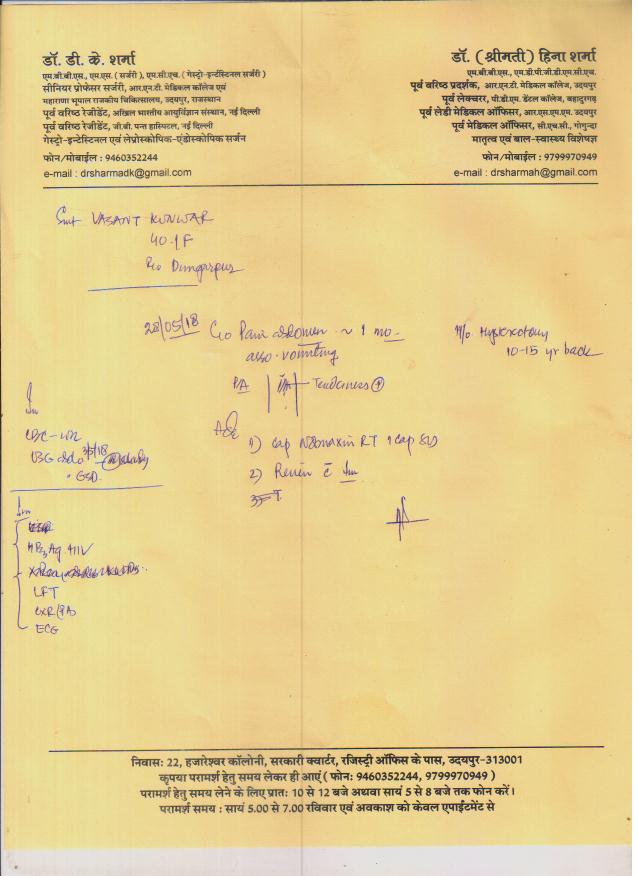 डॉ. डी. के. शर्मा
एम.बी.बी.एस., एम.एस. (सर्जरी), एम.सी.एच. (गेस्ट्रो-इन्टेस्टिनल सर्जरी)
सीनियर प्रोफेसर सर्जरी, आर.एन.टी. मेडिकल कॉलेज एवं
महाराणा भूपाल राजकीय चिकित्सालय, उदयपुर, राजस्थान
पूर्व वरिष्ठ रेजीडेंट, अखिल भारतीय आयुर्विज्ञान संस्थान, नई दिल्ली
पूर्व वरिष्ठ रेजीडेंट, जी.बी. पन्त हास्पिटल, नई दिल्ली
गेस्ट्रो-इन्टेस्टिनल एवं लेप्रोस्कोपिक-एंडोस्कोपिक सर्जन
फोन/मोबाईल : 9460352244
e-mail : drsharmadk@gmail.com
डॉ. (श्रीमती) हिना शर्मा
एम.बी.बी.एस., एम.डी.पी.जी.डी.एम.सी.एच.
पूर्व वरिष्ठ प्रदर्शक, आर.एन.टी. मेडिकल कॉलेज, उदयपुर
पूर्व लेक्चरर, पी.डी.एम. डेंटल कॉलेज, बहादुरगढ़
पूर्व लेडी मेडिकल ऑफिसर, आर.एस.एम.एम. उदयपुर
पूर्व मेडिकल ऑफिसर, सी.एच.सी., गोगुन्दा
मातृत्व एवं बाल-स्वास्थ्य विशेषज्ञ
फोन/मोबाईल : 9799970949
e-mail : drsharmah@gmail.com
Smt VASANT KUNWAR
40 / F
R/o Dungarpur
28/05/18 C/o Pain abdomen ~ 1 mo
asso. vomiting
H/o Hysterectomy
10-15 yr back
PA Tenderness +
Adv
1) Cap RT 1 cap
2) Review c Inv
Inv
CBC
USG abdo 3/5/18
GSD
Inv
HBsAg, HIV
LFT
CXR (PA)
ECG
निवास: 22, हजारेश्वर कॉलोनी, सरकारी क्वार्टर, रजिस्ट्री ऑफिस के पास, उदयपुर-313001
कृपया परामर्श हेतु समय लेकर ही आएं ( फोन: 9460352244, 9799970949 )
परामर्श हेतु समय लेने के लिए प्रात: 10 से 12 बजे अथवा सायं 5 से 8 बजे तक फोन करें।
परामर्श समय : सायं 5.00 से 7.00 रविवार एवं अवकाश को केवल एपाईंटमेंट से